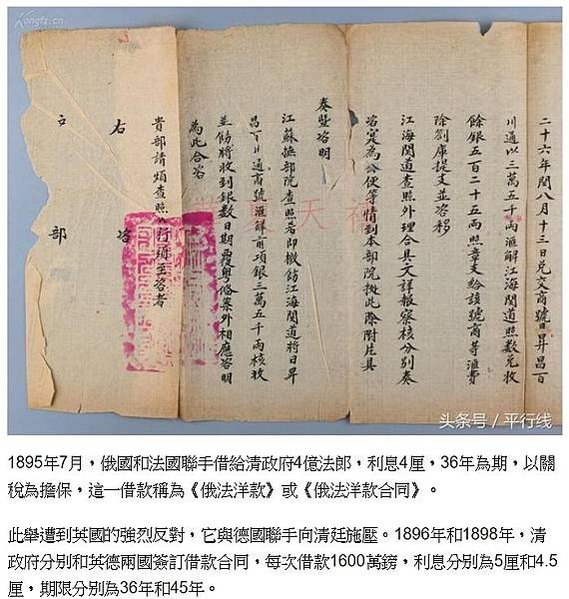 二十六年閏八月十三日兌交商號日昇昌百
川通以三萬五千兩滙解江海関道照數兌收
餘銀五百二十五兩照章支給該號商等滙費
除劄庫提支並咨移
江海関道查照外理合具文詳報察核分別奏
咨寔為公便等情到本部院據此除附片具
奏暨咨明
江蘇撫部院查照希即檄飭江海関道將日昇
昌百川通商號滙解前項銀三萬五千兩核收
並飭將收到銀數日期覆粵俻案外相應咨明
為此合咨
貴部請煩查照 行須至咨者
右 咨
戶 部
头条号 / 平行线
1895年7月，俄國和法國聯手借給清政府4億法郎，利息4厘，36年為期，以關
稅為擔保，這一借款稱為《俄法洋款》或《俄法洋款合同》。
此舉遭到英國的強烈反對，它與德國聯手向清廷施壓。1896年和1898年，清
政府分別和英德兩國簽訂借款合同，每次借款1600萬鎊，利息分別為5厘和4.5
厘，期限分別為36年和45年。